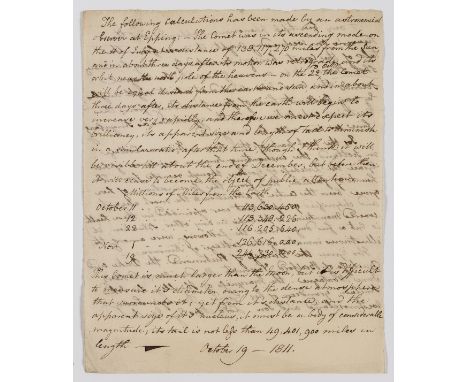 The following Calculations has been made by an astronomical
observer at Epping. The Comet was in its ascending node on
the of July a distance of 138,177,276 miles from the Sun
and in about three days after its motor was and its
orbit near the north pole of the heavens - on the 22d the Comet
will be equal distance from the earth and sun and in about
three days after, its distance from the earth will begin to
increase very rapidly, and therefore we must expect its
brilliancy, its apparent size and length of tail to diminish
in a similar ratio after that time, though I think it will
be visible till about the end of December, but before then
it will cease to become the object of public
Millions of Miles from the Earth
October 11 113,630,450
12 113,340,226
22 116,295,640
Novr 1 126,616,000
This Comet is much larger than the moon but it is difficult
to measure its diameter owing to the dense atmosphere
that surrounds it; yet from its distance, and the
apparent size of its nucleus, it must be a body of considerable
magnitude; its tail is not less than 49,401,900 miles in
length
October 19 — 1811.